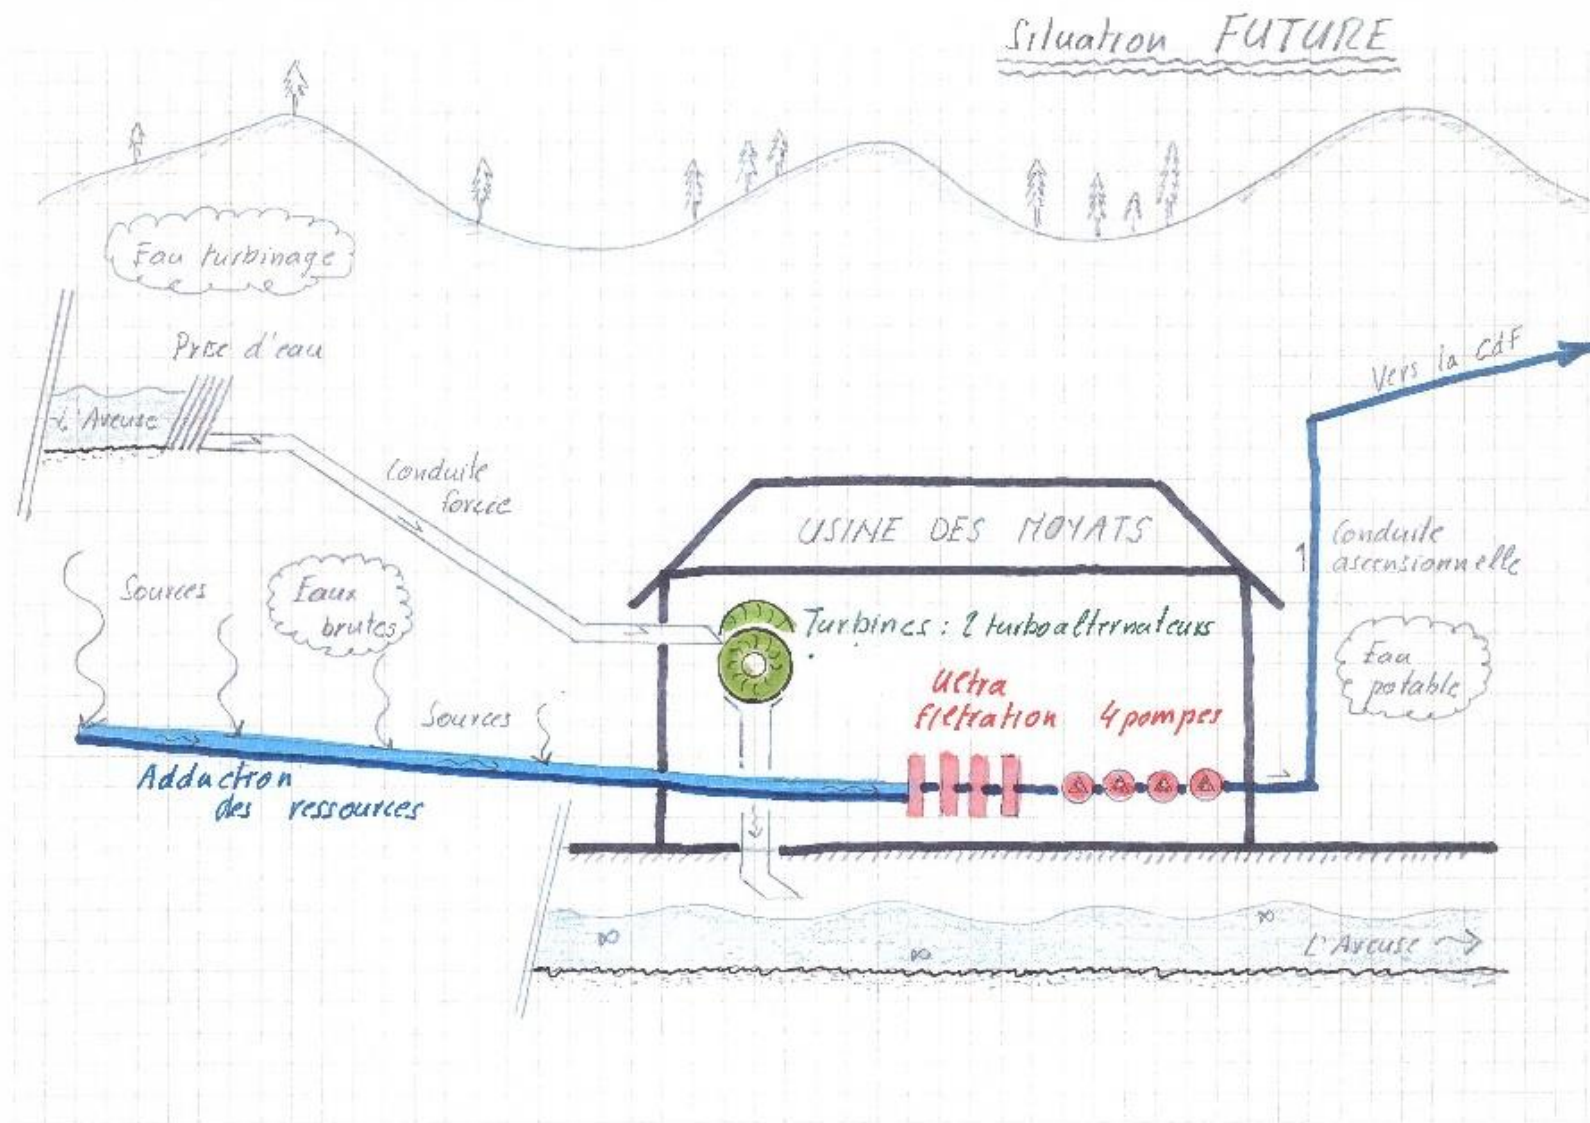 Situation FUTURE
Eau turbinage
Prise d'eau
L'Areuse
Conduite
forcée
USINE DES MOYATS
Vers la CdF
1
Conduite
ascensionnelle
Sources
Eaux
brutes
Turbines : 2 turboalternateurs
Eau
potable
Ultra
filtration
4 pompes
Sources
Adduction
des ressources
L'Areuse